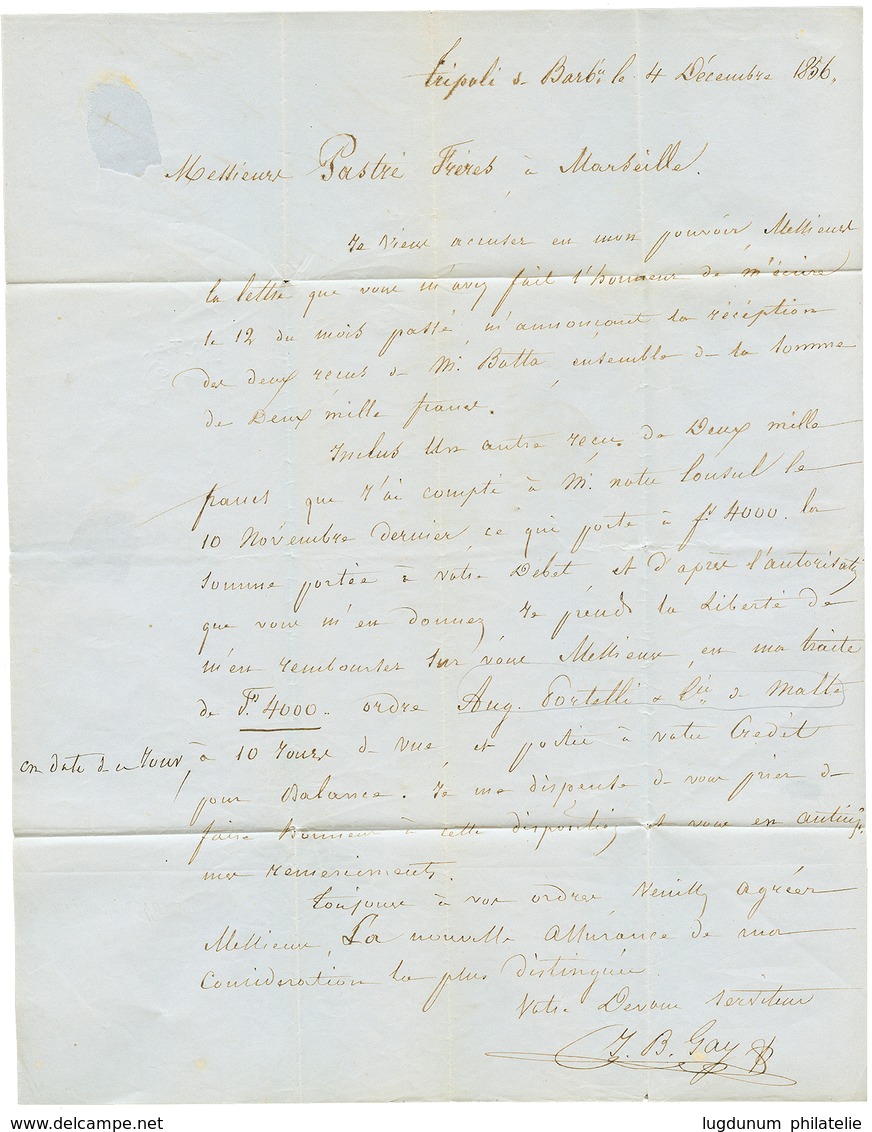 Tripoli de Barbie le 4 Décembre 1856.
Messieurs Pastré Frères à Marseille.
Je viens accuser en mon pouvoir Messieurs
la lettre que vous m'avez fait l'honneur de m'écrire
le 12 du mois passé m'annonçant la réception
des deux recus de Mr. Botta ensemble de la somme
de Deux mille francs.
Inclus Un autre recu de Deux mille
francs que j'ai compté à Mr. notre Consul le
10 Novembre dernier ce qui porte à fs 4000. la
somme portée à votre Debet et d'après l'autorisat°n
que vous m'en donnez Je prends la Liberté de
m'en rembourser sur vous Messieurs, en ma traite
de Fs 4000.. ordre Aug. Portelli & Cie de Malte
en date de ce Jour, à 10 Jours de vue et portée à votre Credit
pour Balance. Je me dispense de vous prier de
faire honneur à cette disposition et vous en anticipe
mes remerciments.
Toujours à vos ordres Veuillez agréer
Messieurs La nouvelle Assurance de ma
Consideration la plus distinguée
Votre Devoué serviteur
J. B. Gay
www.delcampe.net
lugdunum philatelie